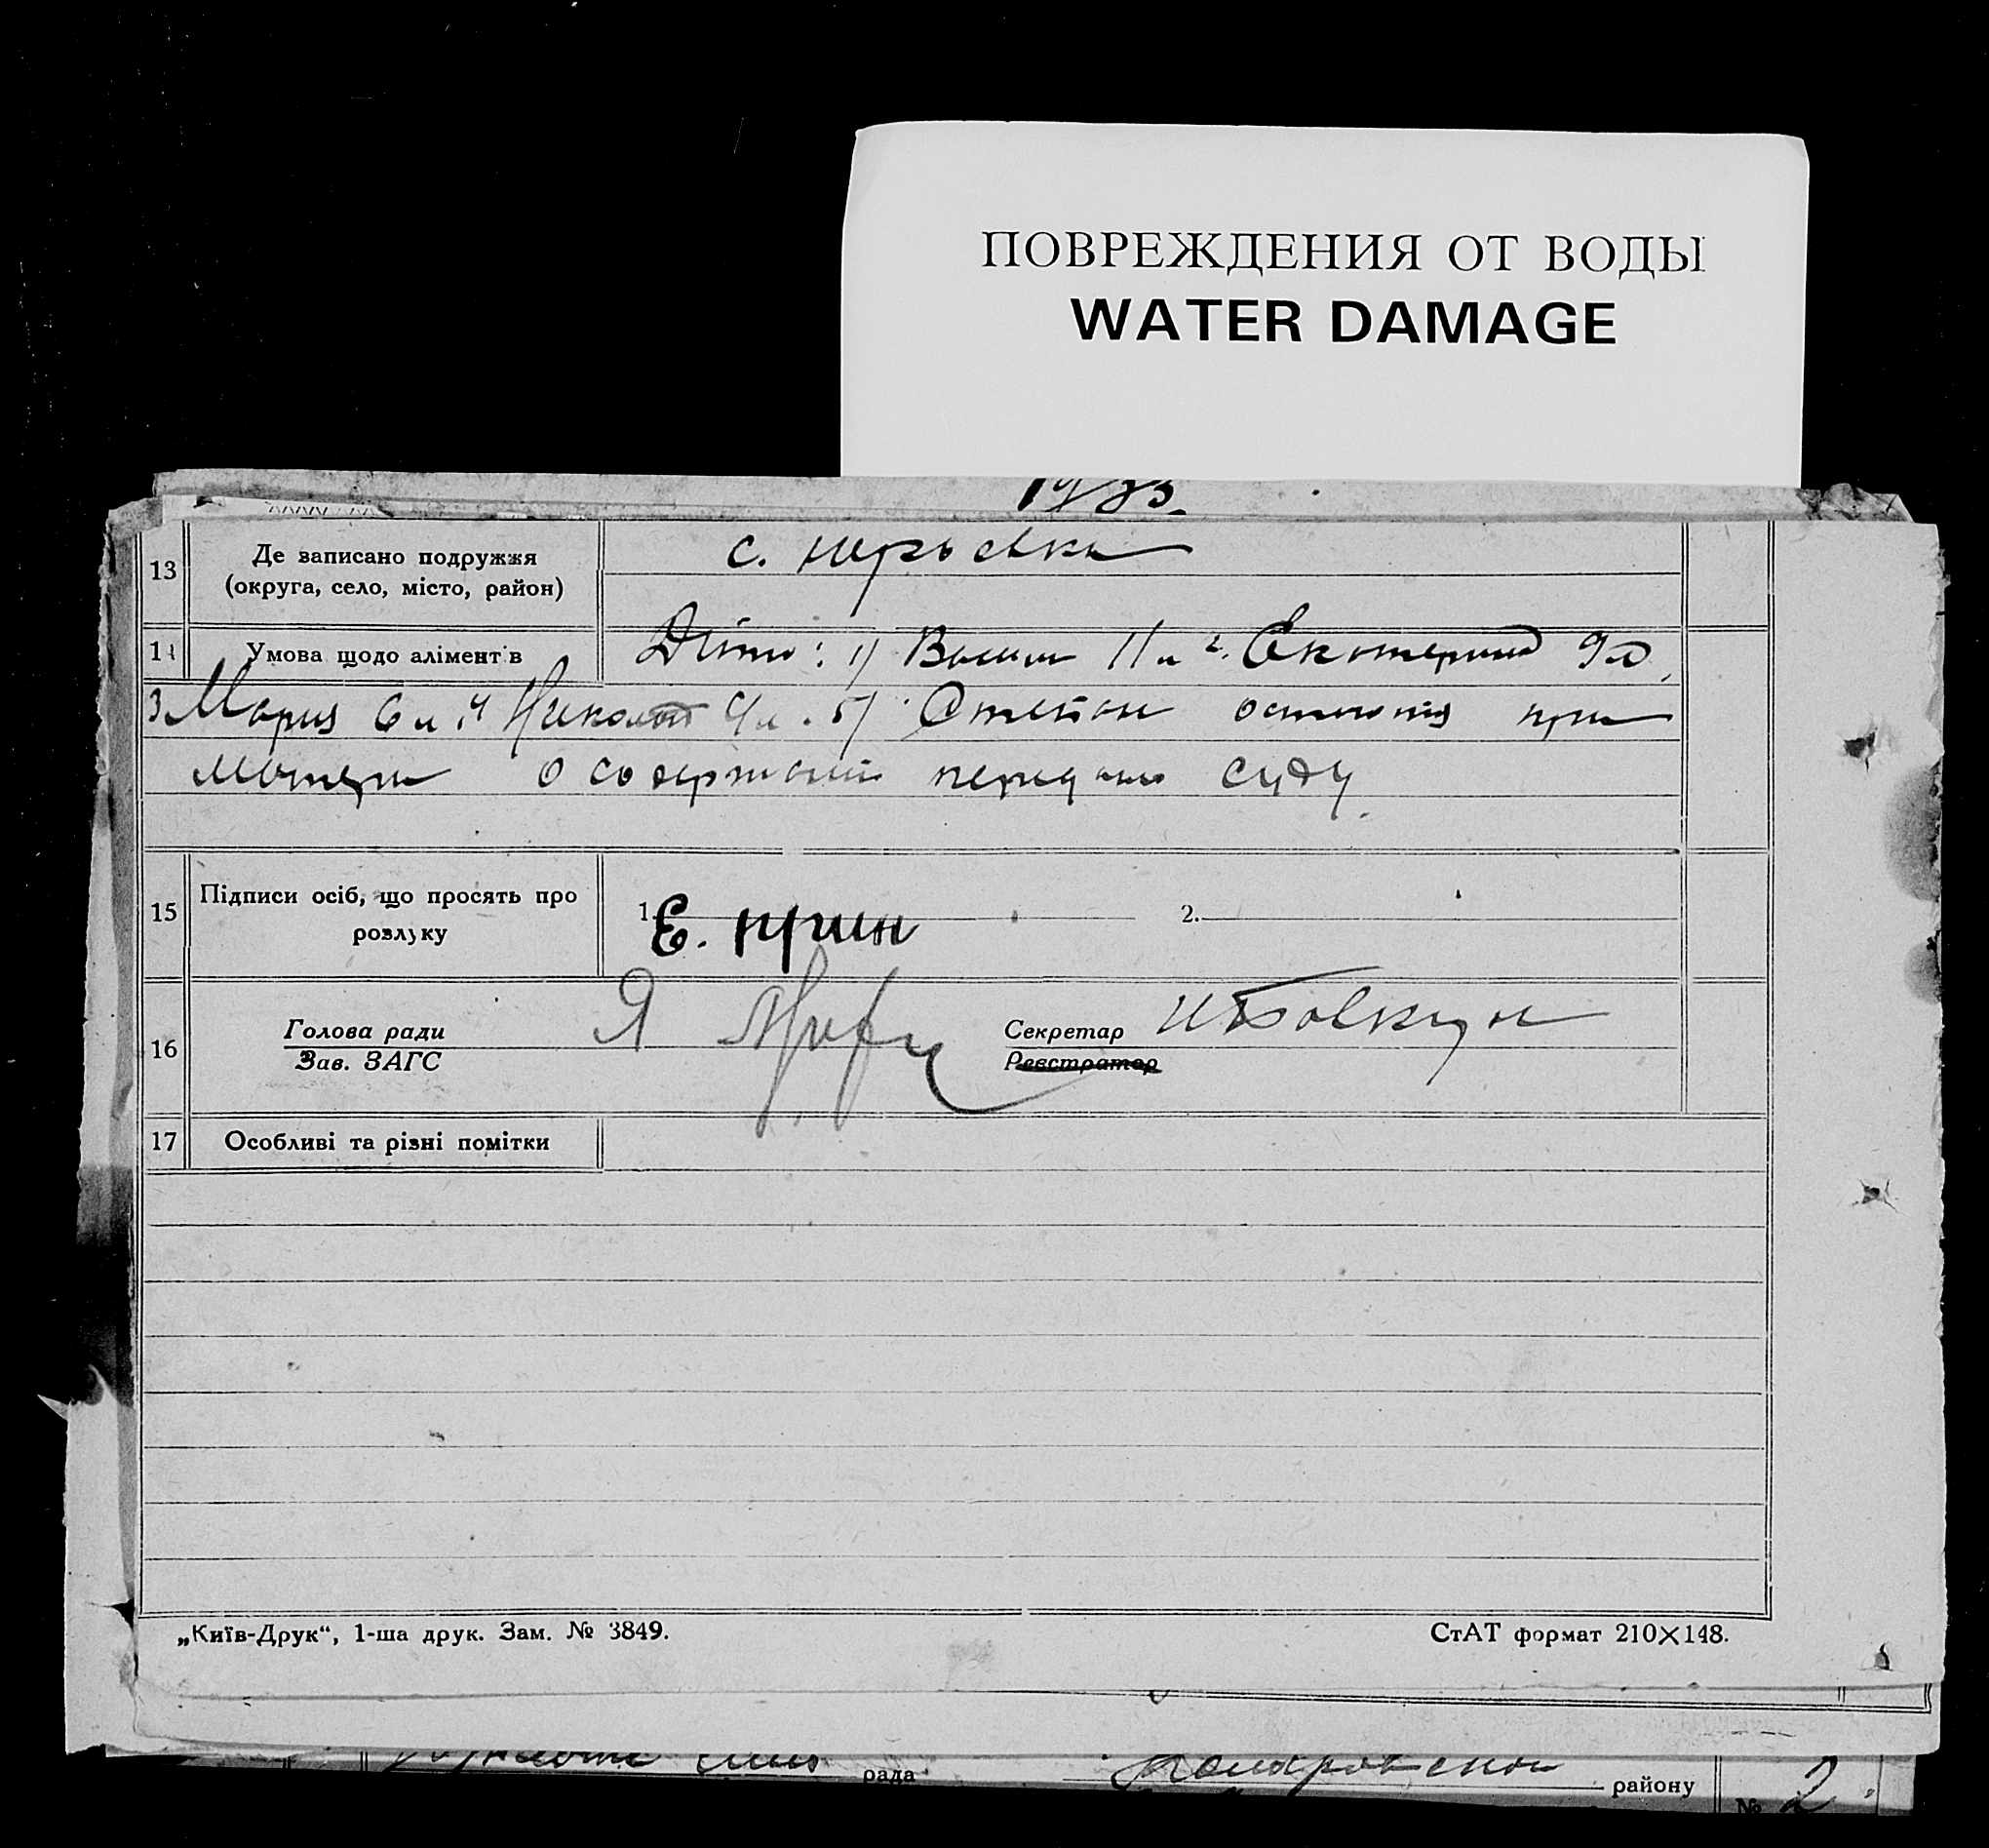 ПОВРЕЖДЕНИЯ ОТ ВОДЫ
WATER DAMAGE
13 Де записано подружжя
(округа, село, місто, район)
с.
14 Умова щодо алімент в Діти: 1) 11 л 2. Екатерина 9 л.
3 Мария 6 л. 4 Николай 4 л. 5) Степан остаются при
матери о содержании передано суду.
15 Підписи осіб, що просять про
розлуку
1. Е. 2.
16 Голова ради
Зав. ЗАГС
Я
Секретар
Реєстратор
И Бовкун
17 Особливі та різні помітки
„Київ-Друк“, 1-ша друк. Зам. № 3849. СтАТ формат 210×148.
рада району № 2